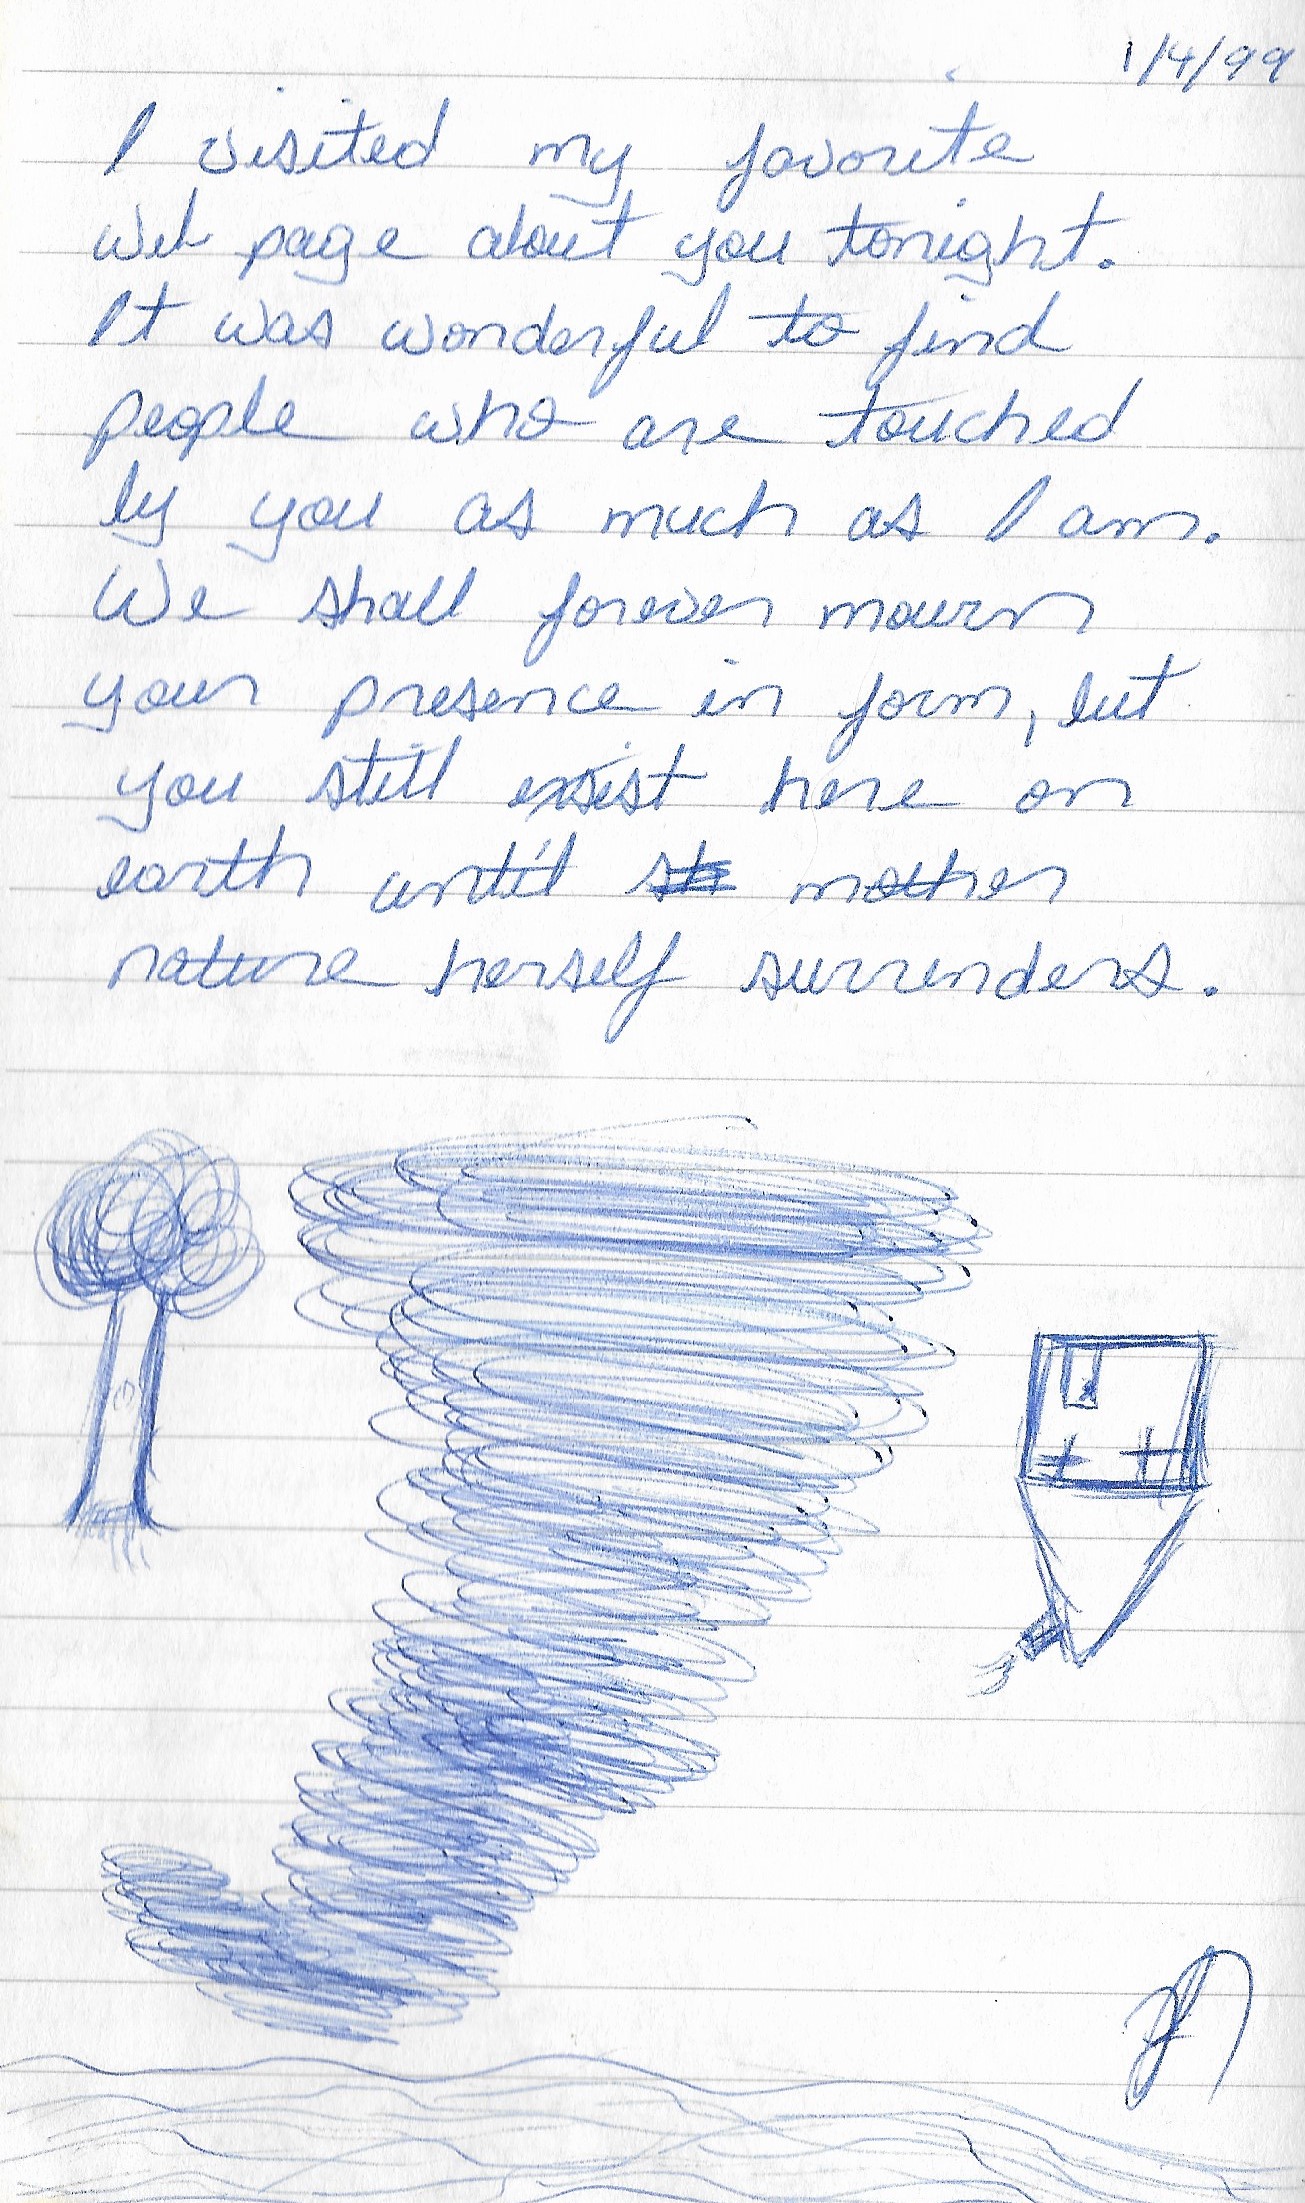 1/4/99
I visited my favorite
web page about you tonight.
It was wonderful to find
people who are touched
by you as much as I am.
We shall forever mourn
your presence in form, but
you still exsist here on
earth until mother
nature herself surrenders.